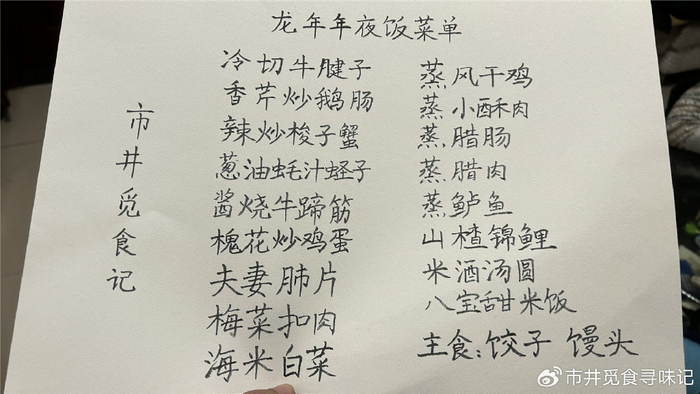 龙年年夜饭菜单
市井觅食记
冷切牛腱子
香芹炒鹅肠
辣炒梭子蟹
葱油蚝汁蛏子
酱烧牛蹄筋
槐花炒鸡蛋
夫妻肺片
梅菜扣肉
海米白菜
蒸风干鸡
蒸小酥肉
蒸腊肠
蒸腊肉
蒸鲈鱼
山楂锦鲤
米酒汤圆
八宝甜米饭
主食:饺子 馒头
@市井觅食寻味记